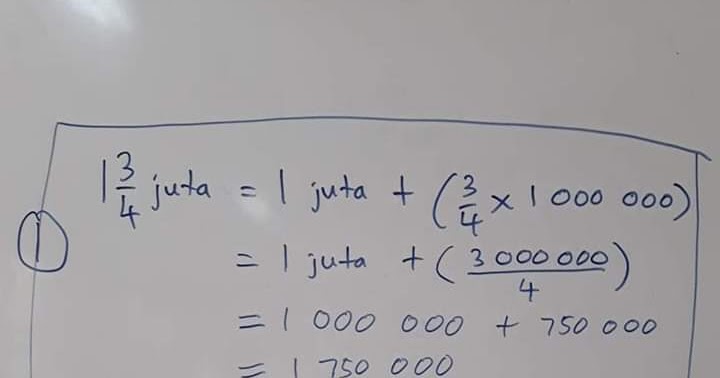 1 3/4 juta = 1 juta + (3/4 × 1 000 000)
1
= 1 juta + (3 000 000/4)
= 1 000 000 + 750 000
= 1 750 000